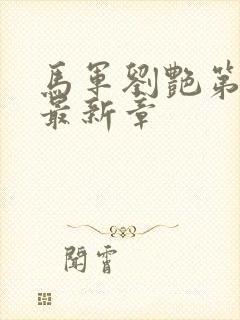 馬軍劉艷第
最新章
聞霄